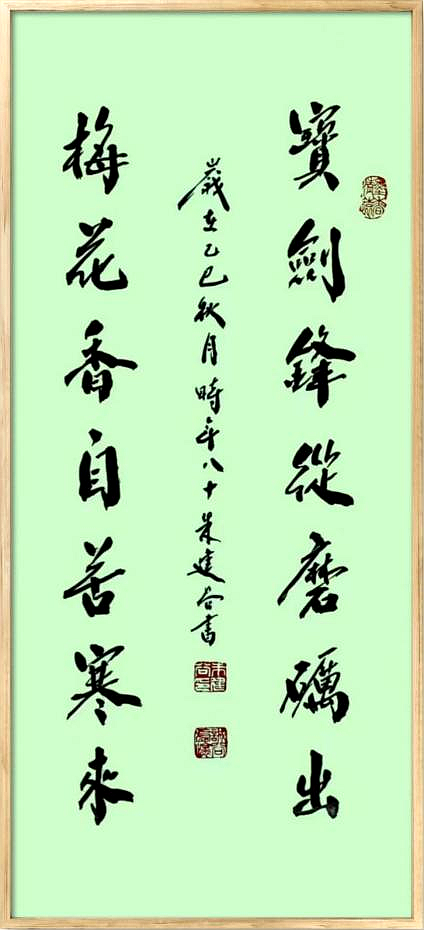 寶劍鋒從磨礪出
梅花香自苦寒來
歲在乙巳秋月時年八十朱建谷書